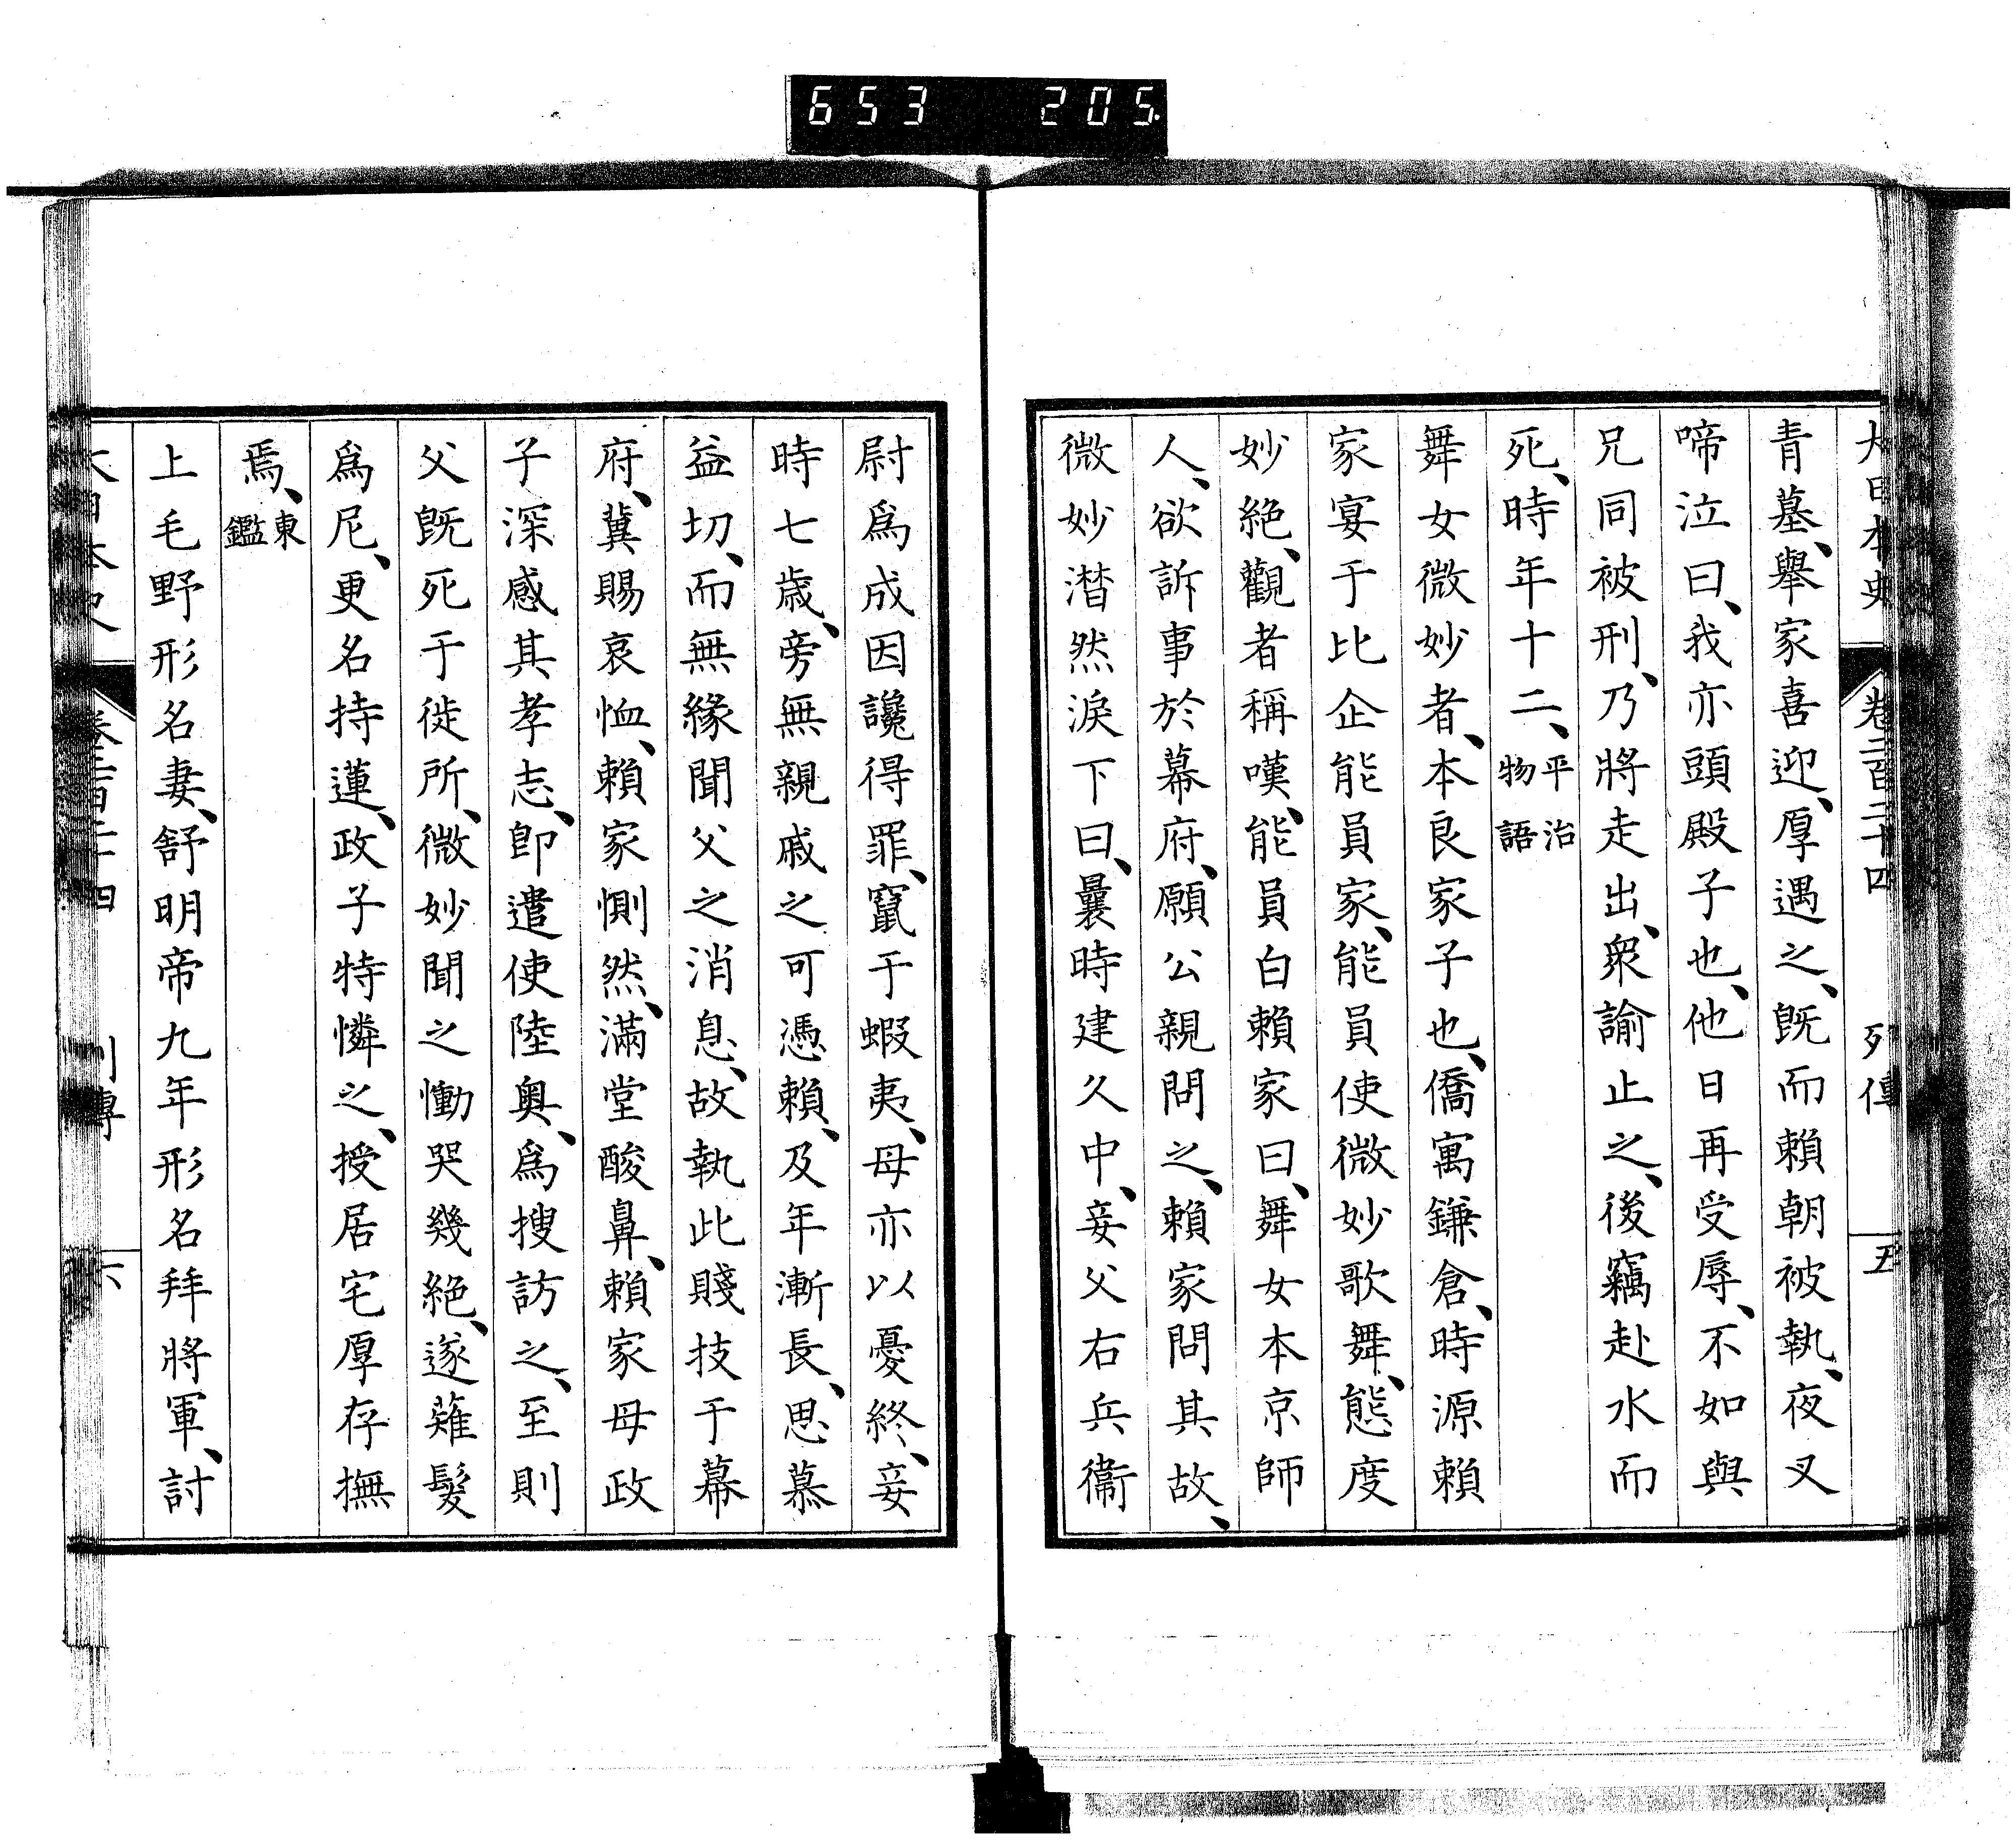 653 205
大日本史 卷二百二十四 列傳 五
青墓、擧家喜迎、厚遇之、既而賴朝被執、夜叉
啼泣曰、我亦頭殿子也、他日再受辱、不如與
兄同被刑、乃將走出、衆諭止之、後竊赴水而
死、時年十二、平治物語
舞女微妙者、本良家子也、僑寓鎌倉、時源賴
家宴于比企能員家、能員使微妙歌舞、態度
妙絶、觀者稱嘆、能員白賴家曰、舞女本京師
人、欲訴事於幕府、願公親問之、賴家問其故、
微妙潸然淚下曰、曩時建久中、妾父右兵衞
尉爲成因讒得罪、竄于蝦夷、母亦以憂終、妾
時七歳、旁無親戚之可憑賴、及年漸長、思慕
益切、而無緣聞父之消息、故執此賤技于幕
府、冀賜哀恤、賴家惻然、滿堂酸鼻、賴家母政
子深感其孝志、卽遣使陸奥、爲搜訪之、至則
父既死于徙所、微妙聞之慟哭幾絶、遂薙髮
爲尼、更名持蓮、政子特憐之、授居宅厚存撫
焉、東鑑
上毛野形名妻、舒明帝九年形名拜將軍、討
大日本史 卷二百二十四 列傳 六